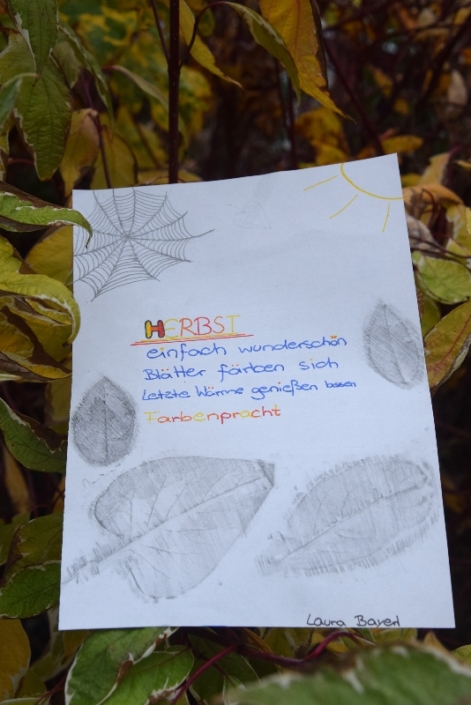 HERBST
einfach wunderschön
Blätter färben sich
Letzte Wärme genießen lassen
Farbenpracht
Laura Bayerl